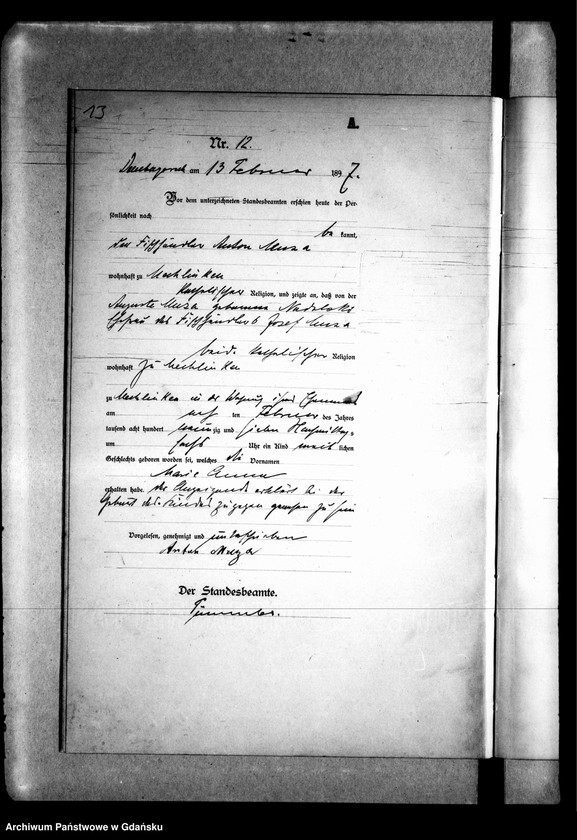 13
A.
Nr. 12.
am 13 Februar 1897.
Vor dem unterzeichneten Standesbeamten erschien heute der Per-
sönlichkeit nach
be kannt,
der Fischhändler Anton Muza
wohnhaft zu Mechlinken
katholischer Religion, und zeigte an, daß von der
Auguste Muza geborene
Ehefrau des Fischhändlers Josef Muza
beide katholischer Religion
wohnhaft zu Mechlinken
zu Mechlinken in der Wohnung ihres Ehemannes
am ten Februar des Jahres
tausend acht hundert neunzig und sieben Nachmittags
um sechs Uhr ein Kind weiblichen
Geschlechts geboren worden sei, welches die Vornamen
Marie Anna
erhalten habe. der Anzeigende erklärt bei der
Geburt des Kindes zugegen gewesen zu sein
Vorgelesen, genehmigt und unterschrieben
Anton Muza
Der Standesbeamte.
Archiwum Państwowe w Gdańsku